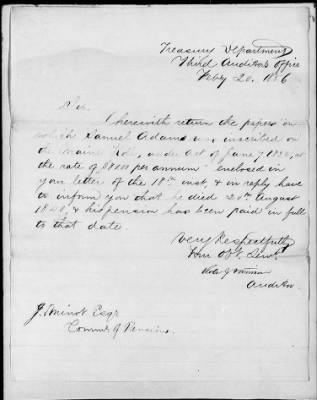 Treasury Department
Third Auditor's Office
Feby 20. 1856
Sir
I herewith return the papers on
which Samuel Adams was inscribed on
the Maine Roll, under Act of June 7, 1832, at
the rate of per annum enclosed in
your letter of the 18th inst, & in reply have
to inform you that he died 20th August
& his pension has been paid in full
to that date.
Very Respectfully
Obt. Servt.
Auditor
J. Minot Esqr
Commr of Pensions